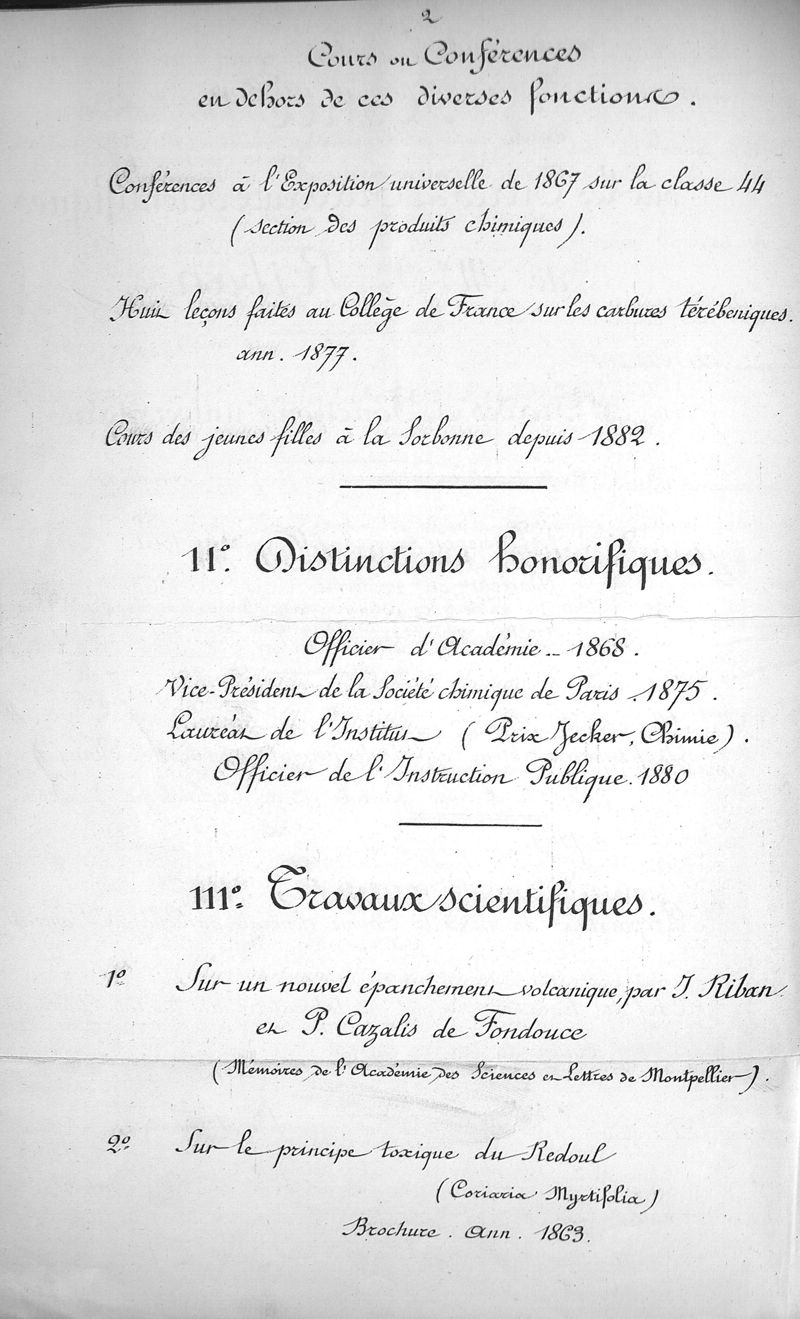 2
Cours ou Conférences
en dehors de ces diverses fonctions.
Conférences à l'Exposition universelle de 1867 sur la classe 44
(section des produits chimiques).
Huit leçons faites au Collège de France sur les carbures térébeniques.
ann. 1877.
Cours des jeunes filles à la Sorbonne depuis 1882.
II°. Distinctions honorifiques.
Officier d'Académie _ 1868.
Vice-Président de la Société chimique de Paris. 1875.
Lauréat de l'Institut (Prix Jecker, Chimie).
Officier de l'Instruction Publique. 1880
III°. Travaux scientifiques.
1° Sur un nouvel épanchement volcanique, par J. Riban
et P. Cazalis de Fondouce
(Mémoires de l'Académie des Sciences et Lettres de Montpellier).
2° Sur le principe toxique du Redoul
(Coriaria Myrtifolia)
Brochure. Ann. 1863.